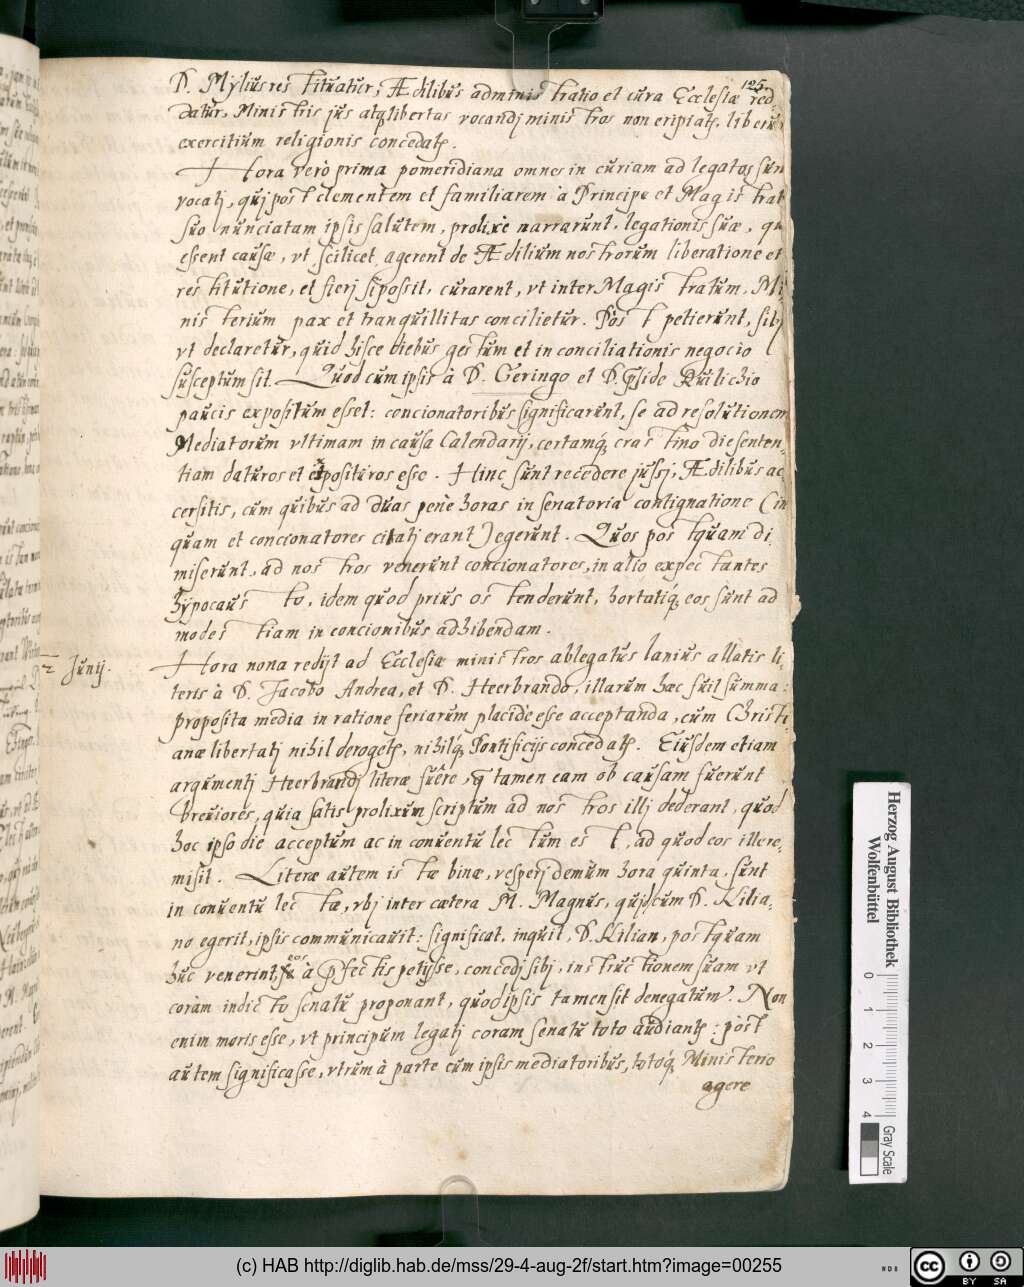 125.
D. Mylius restituatur, Ædilibus administratio et cura Ecclesiæ red-
datur, Ministris jus atq; libertas vocandj ministros non eripiatr, liberum
exercitium religionis concedatr.
Hora verò prima pomeridiana omnes in curiam ad legatos sunt
vocatj, quj post clementem et familiarem à Principe et Magistratu
suo nunciatam ipsis salutem, prolixè narrarunt, legationis suæ, quæ
essent causæ, vt scilicet agerent de Ædilium nostrorum liberatione et
restitutione, et fierj si possit, curarent, vt inter Magistratum, Mi-
nisterium pax et tranquillitas concilietur. Pòst petierunt, sibj
vt declaretur, quid hisce diebus gestum et in conciliationis negocio
susceptum sit. Quod cum ipsis à D. Geringo et D. Præside Builichio
paucis expositum esset: concionatoribus significarunt, se ad resolutionem
Mediatorum vltimam in causa Calendarij, certamq; crastino die senten-
tiam daturos et exposituros esse. Hinc sunt recedere jussj, Ædilibus ac-
cersitis, cum quibus ad duas penè horas in senatoria contignatione (in
quam et concionatores citatj erant) egerunt. Quos postquam di-
miserunt, ad nostros venerunt concionatores, in alio expectantes
hypocausto, idem quod prius ostenderunt, hortatiq; eos sunt ad
modestiam in concionibus adhibendam.
Junij.
Hora nona redijt ad Ecclesiæ ministros ablegatus lanius allatis li-
teris à D. Jacobo Andrea, et D. Heerbrando, illarum hæc fuit summa:
proposita media in ratione feriarum placidè esse acceptanda, cum Christi-
anæ libertatj nihil derogetr, nihilq; Pontificijs concedatr. Eiusdem etiam
argumentj Heerbrandj literæ fuêre, quæ tamen eam ob causam fuerunt
breuiores, quia satis prolixum scriptum ad nostros illj dederant, quod
hoc ipso die acceptum ac in conuentu lectum est, ad quod eos ille re-
misit. Literæ autem istæ binæ, vesperj demum hora quinta, sunt
in conuentu lectæ, vbj inter cætera M. Magnus, quid cum D. Kilia-
no egerit, ipsis communicauit: significat, inquit, D. Kilian, postquam
huc venerint, eos à Præfectis petijsse, concedj sibj, instructionem suam vt
coràm indicto senatu proponant, quod ipsis tamen sit denegatum. Non
enim moris esse, vt principum legatj coram senatu toto audiantr: pòst
autem significasse, vtrum à parte cum ipsis mediatoribus, totoq; Ministerio
agere
Herzog August Bibliothek
Wolfenbüttel
0 1 2 3 4
Gray Scale
(c) HAB http://diglib.hab.de/mss/29-4-aug-2f/start.htm?image=00255
cc BY SA